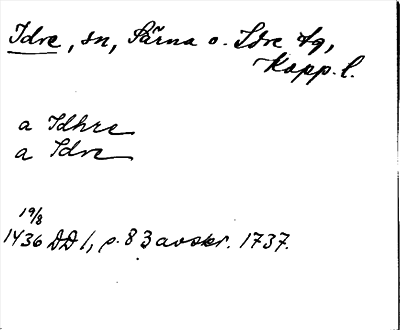 Idre, sn, Särna o. Idre tg,
Kopp. l.
a Idhre
a Idre
19/8
1436 DD 1, p. 83 avskr. 1737.